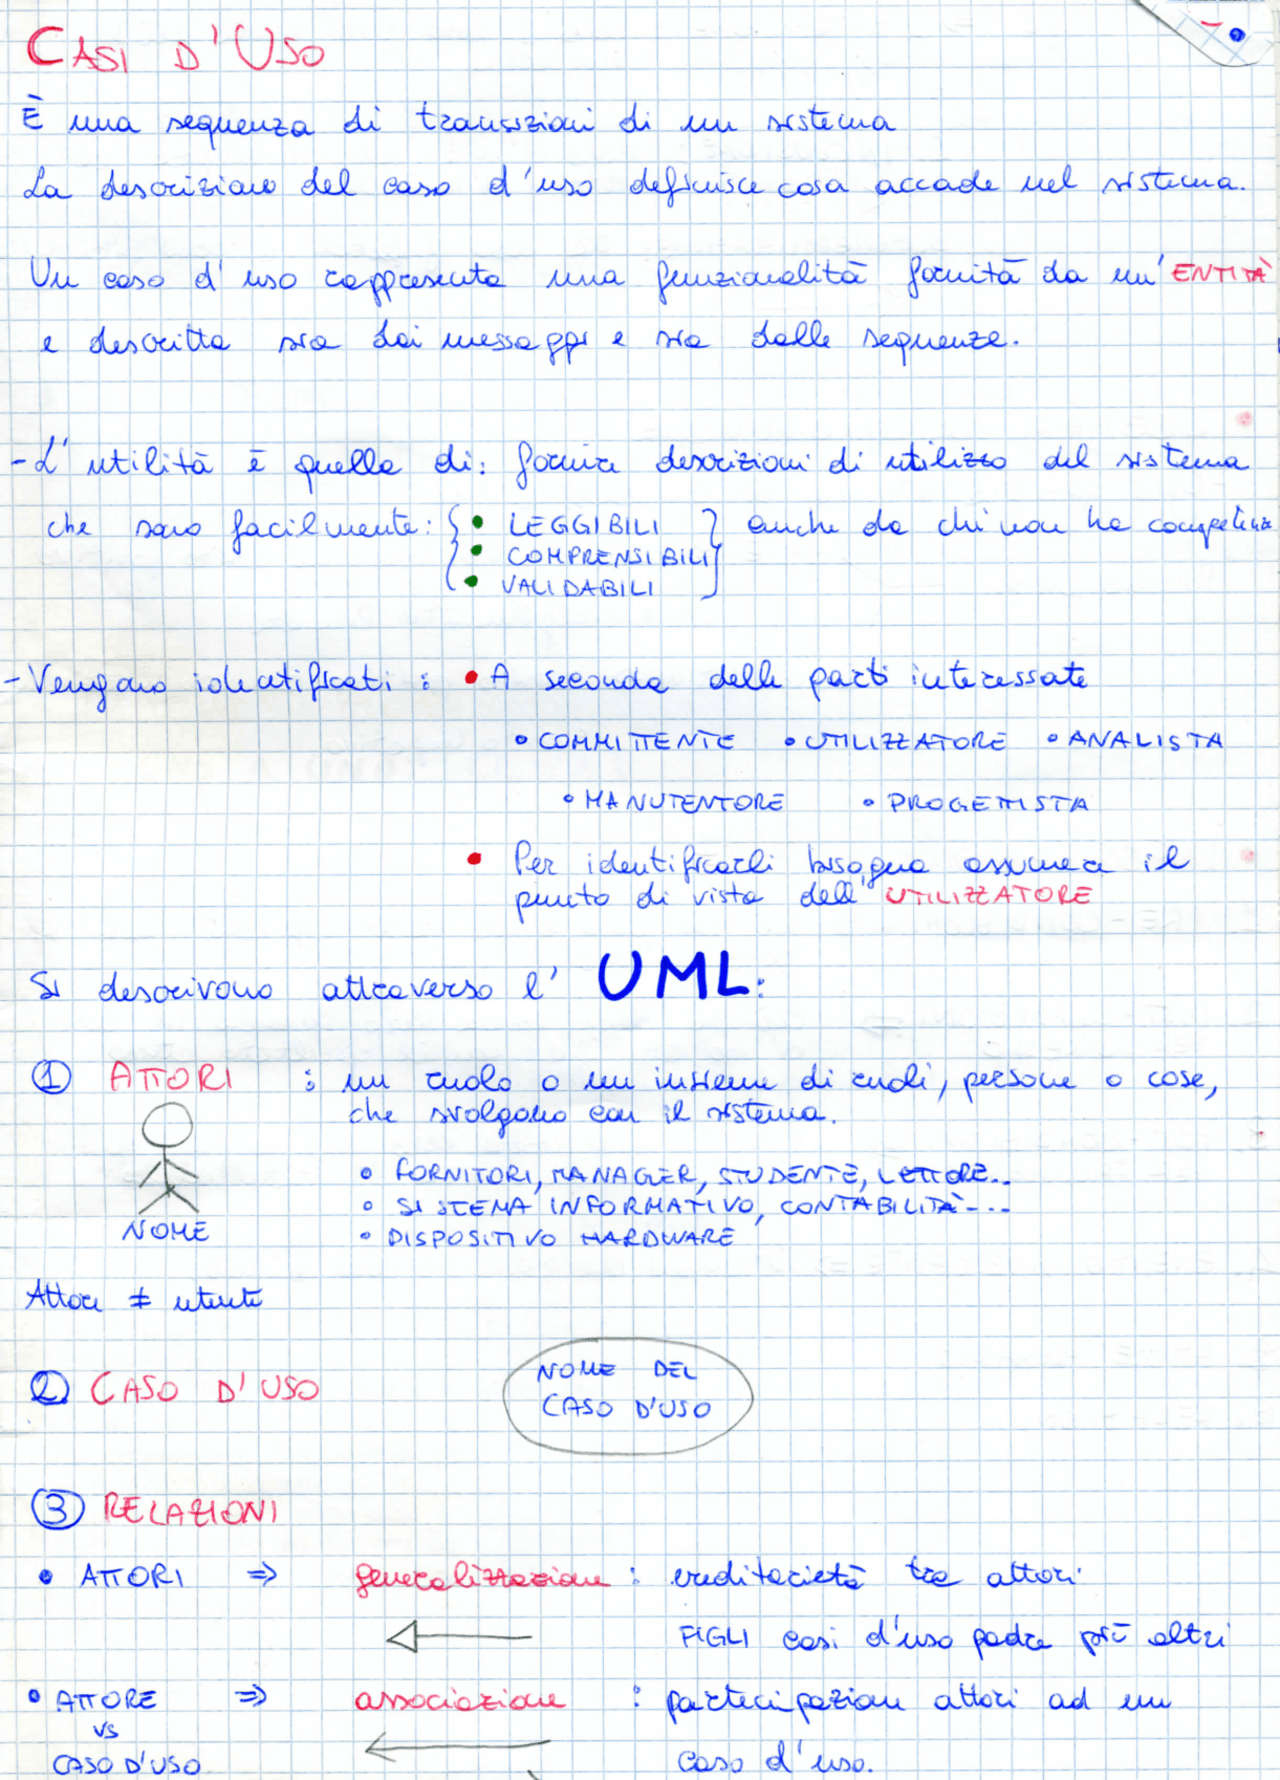 CASI D'USO
È una sequenza di transizioni di un sistema
La descrizione del caso d'uso definisce cosa accade nel sistema.
Un caso d'uso rappresenta una funzionalità fornita da un'ENTITÀ
e descritta sia dai messaggi e sia dalle sequenze.
- L'utilità è quella di: fornire descrizioni di utilizzo del sistema
che sono facilmente: { • LEGGIBILI } anche da chi non ha competenze
• COMPRENSIBILI
• VALIDABILI
- Vengono identificati : • A seconda delle parti interessate
• COMMITTENTE • UTILIZZATORE • ANALISTA
• MANUTENTORE • PROGETTISTA
• Per identificarli bisogna assumere il
punto di vista dell'UTILIZZATORE
Si descrivono attraverso l' UML:
① ATTORI : un ruolo o un insieme di ruoli, persone o cose,
che svolgono con il sistema.
• FORNITORI, MANAGER, STUDENTE, LETTORE..
• SISTEMA INFORMATIVO, CONTABILITÀ---
• DISPOSITIVO HARDWARE
NOME
Attore ≠ utente
② CASO D'USO
NOME DEL
CASO D'USO
③ RELAZIONI
• ATTORI ⇒ generalizzazione : ereditarietà tra attori
FIGLI casi d'uso padre più altri
• ATTORE ⇒ associazione : partecipazione attori ad un
VS
CASO D'USO caso d'uso.